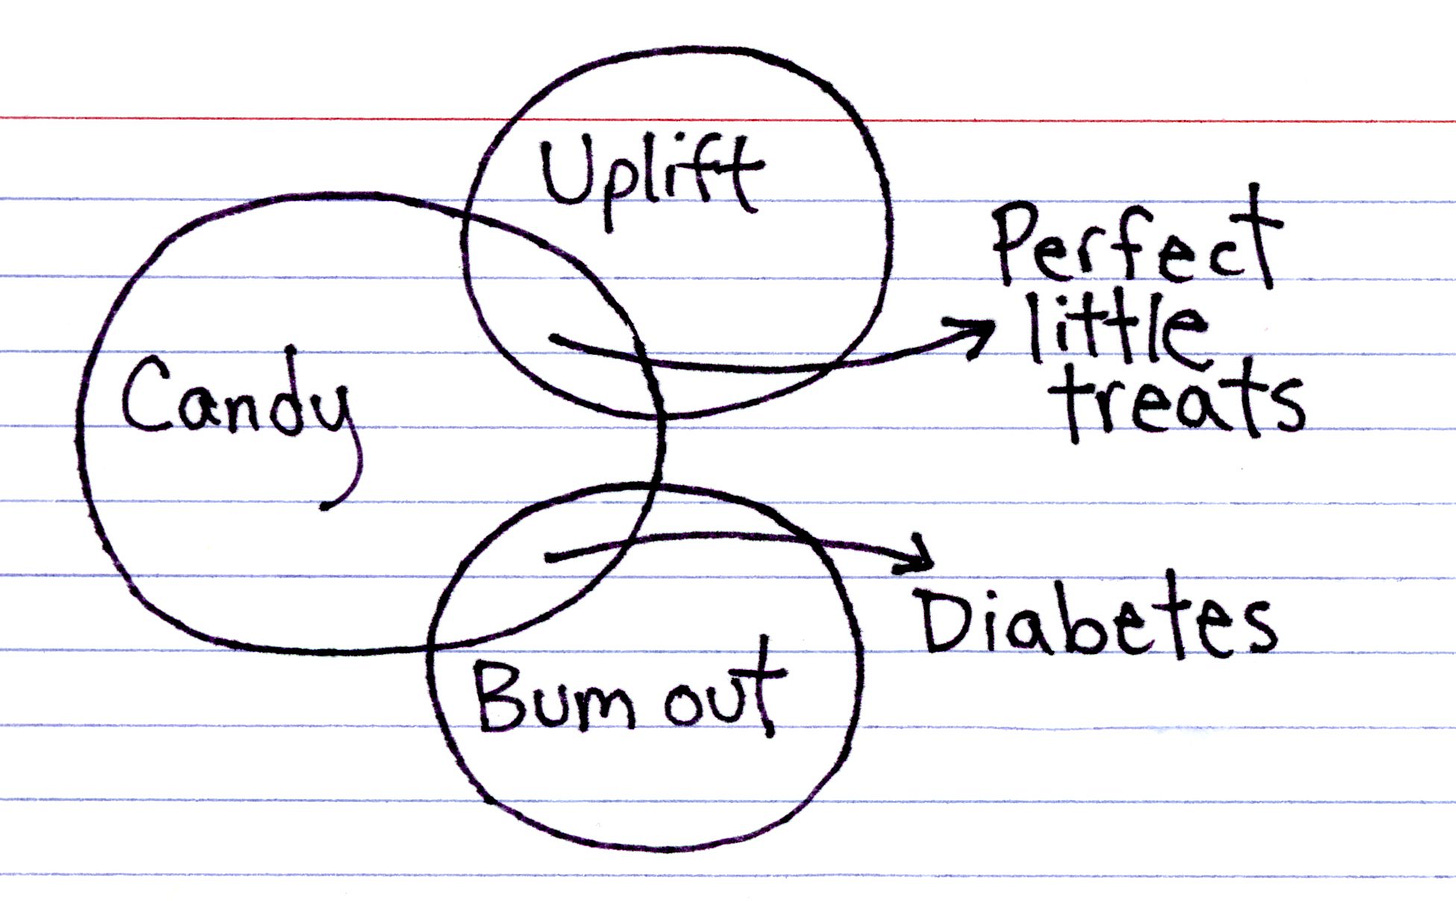 Uplift
Perfect
little
treats
Candy
Diabetes
Bum out